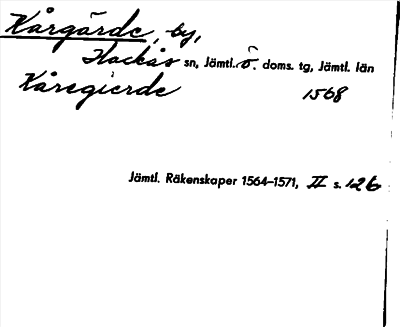 Kårgärde, by,
Hackås sn, Jämtl. ö. doms. tg, Jämtl. län
Kåregierde 1568
Jämtl. Räkenskaper 1564–1571, II s. 126